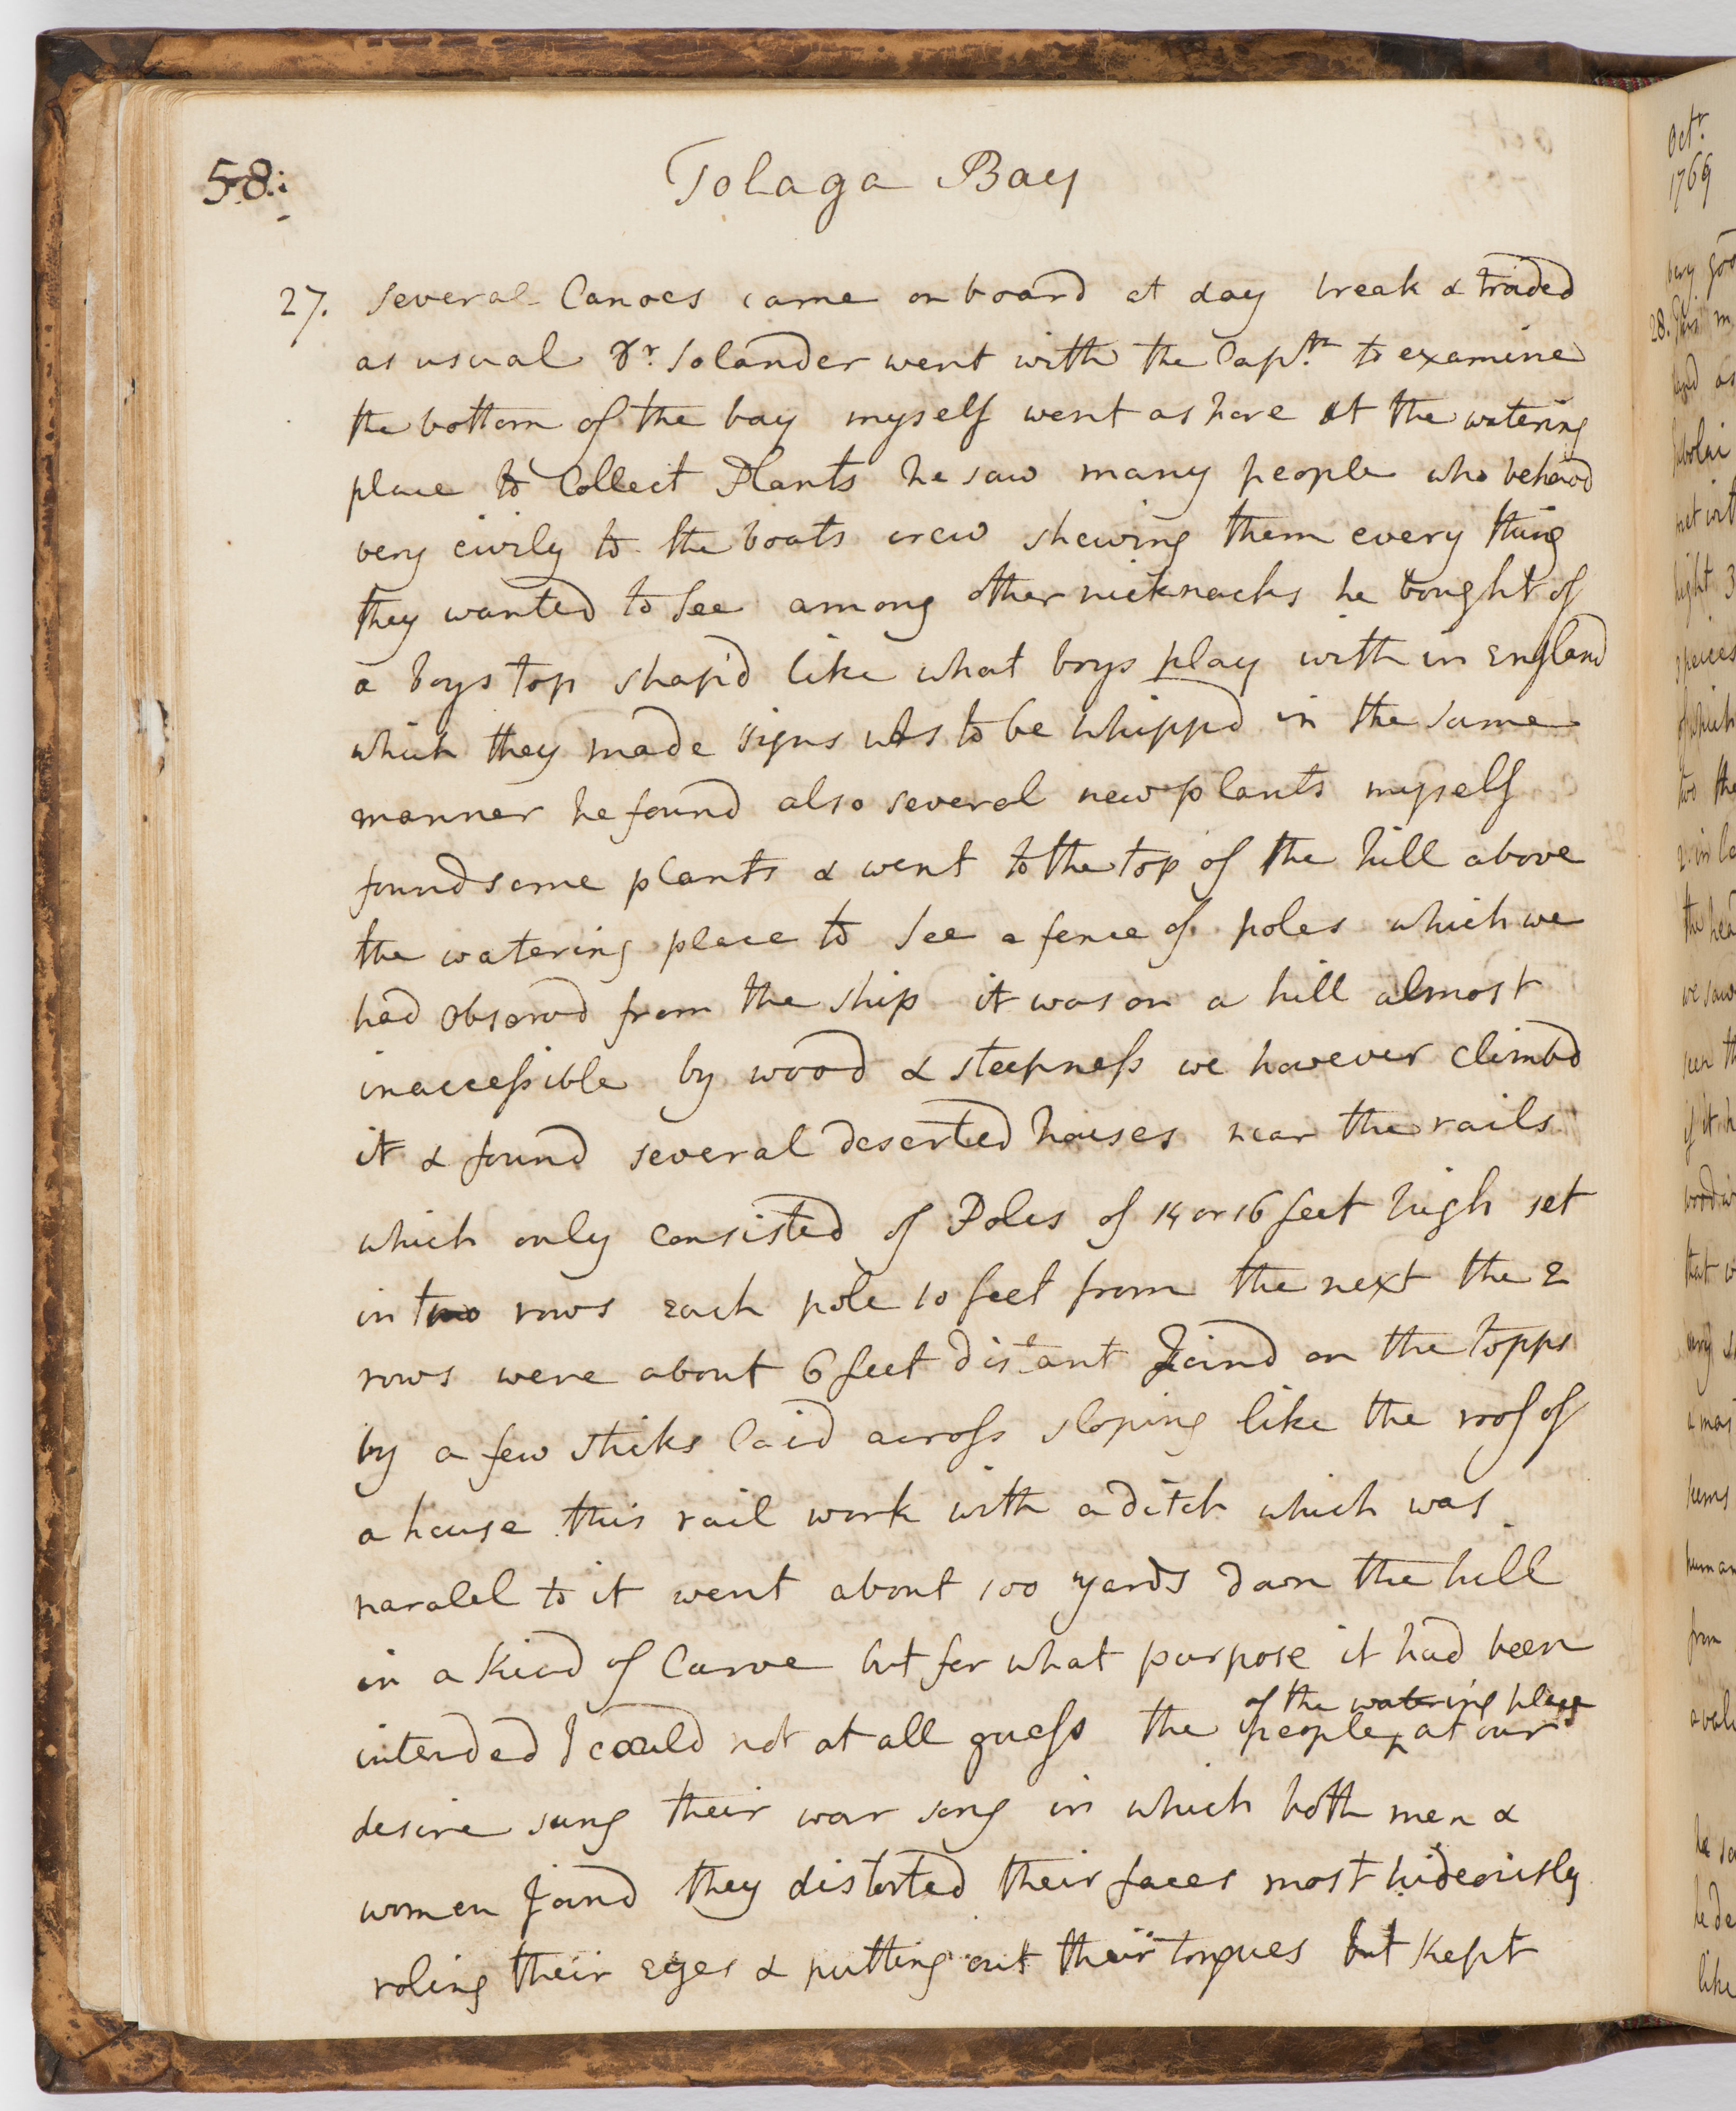 58.
Tolaga Bay
27. several Canoes came on board at day break & traded
as usual Dr. Solander went with the Captn. to examine
the bottom of the bay myself went ashore at the watering
place to Collect Plants he saw many people who behavd
very civily to the boats crew shewing them every thing
they wanted to see among other nicknacks he bought of
a boys top shap'd like what boys play with in England
which they made signs was to be whippd in the same
manner he found also several new plants myself
found some plants & went to the top of the hill above
the watering place to see a fence of poles which we
had observd from the ship it was on a hill almost
inaccessible by wood & steepness we however climbd
it & found several deserted houses near the rails
which only consisted of Poles of 14 or 16 feet high set
in two rows each pole 10 feet from the next the 2
rows were about 6 feet distant Joind on the topps
by a few sticks laid across sloping like the roof of
a house this rail work with a ditch which was
paralel to it went about 100 yards down the hill
in a kind of Curve but for what purpose it had been
intended I could not at all guess the people of the watering place at our
desire sung their war song in which both men &
women Joind they distorted their faces most hideously
roling their eyes & putting out their tongues but kept
Octr.
1769
very good
28.